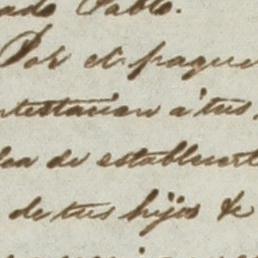 ado Pablo.
Por el paque
ntestarían á tus
dea de establecert
de tus hijos &